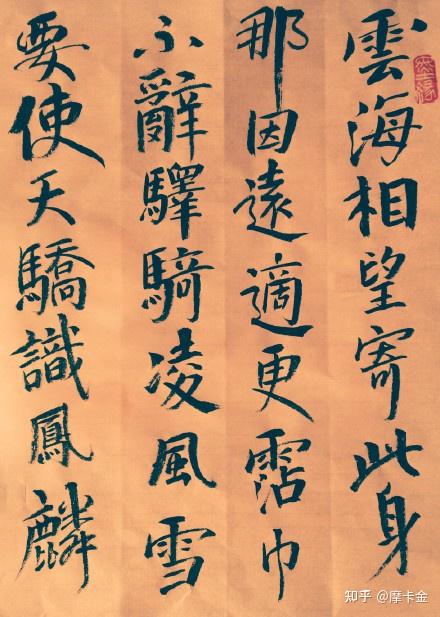 雲海相望寄此身
那因遠適更霑巾
不辭驛騎凌風雪
要使天驕識鳳麟
知乎 @摩卡金